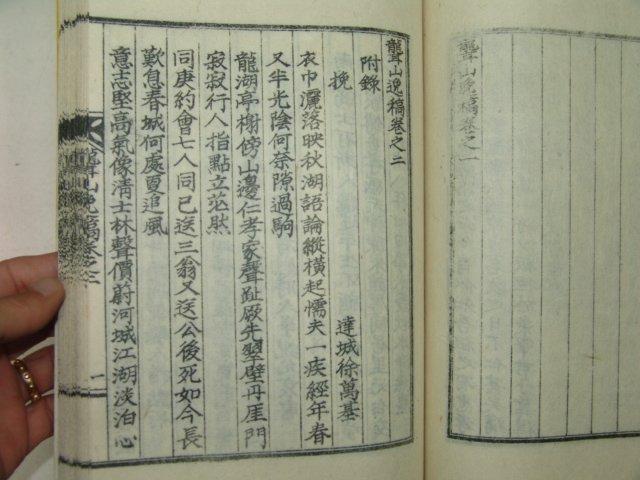 聾山逸稿卷之一
聾山逸稿卷之二
附錄
挽 達城徐萬基
衣巾灑落映秋湖語論縱橫起懦夫一疾經年春
又半光陰何奈隙過駒
龍湖亭榭傍山邊仁孝家聲趾厥先翠壁丹厓門
寂寂行人指點立茫然
同庚約會七人同已送三翁又送公後死如今長
歎息春城何處更追風
意志堅高氣像淸士林聲價蔚河城江湖淡泊心
聾山逸稿卷之二 一